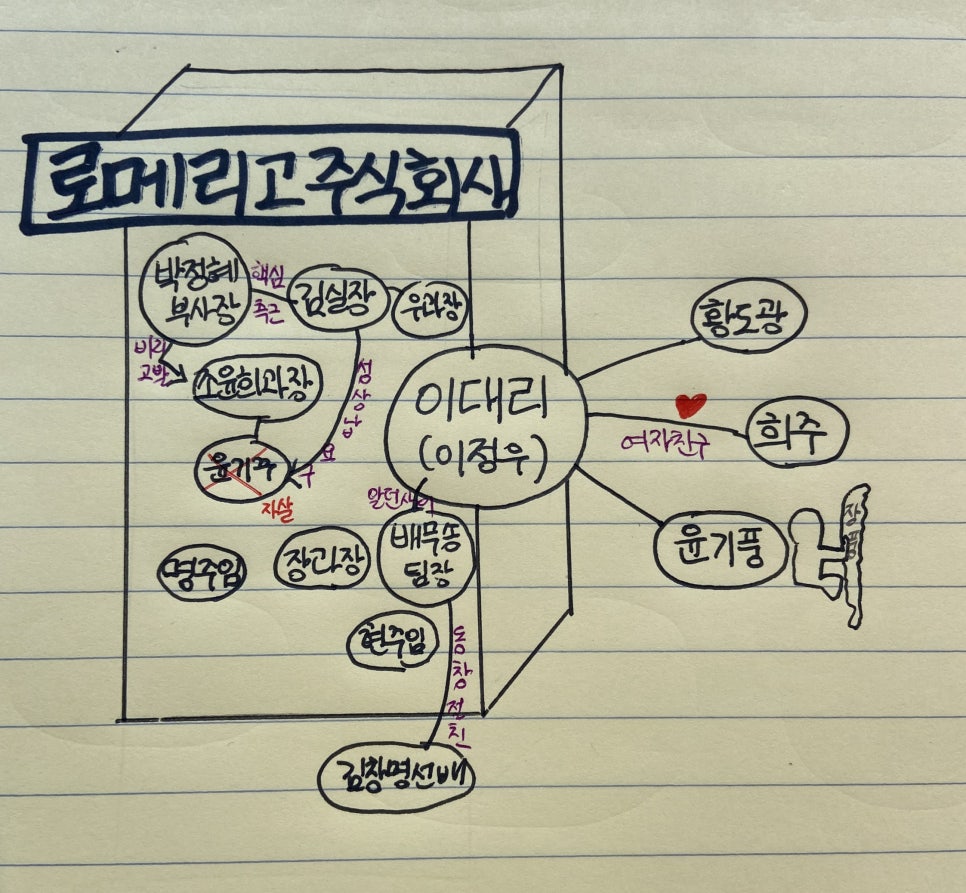 로메리고 주식회사
박정혜
부사장
핵심
측근
김실장
우과장
비리
고발
조윤희과장
성상납
요구
윤기주
자살
이대리
(이정우)
황도광
여자친구
희주
윤기풍
장풍
알던사이
배무송
팀장
명주임
장과장
현주임
동창
절친
김창명선배